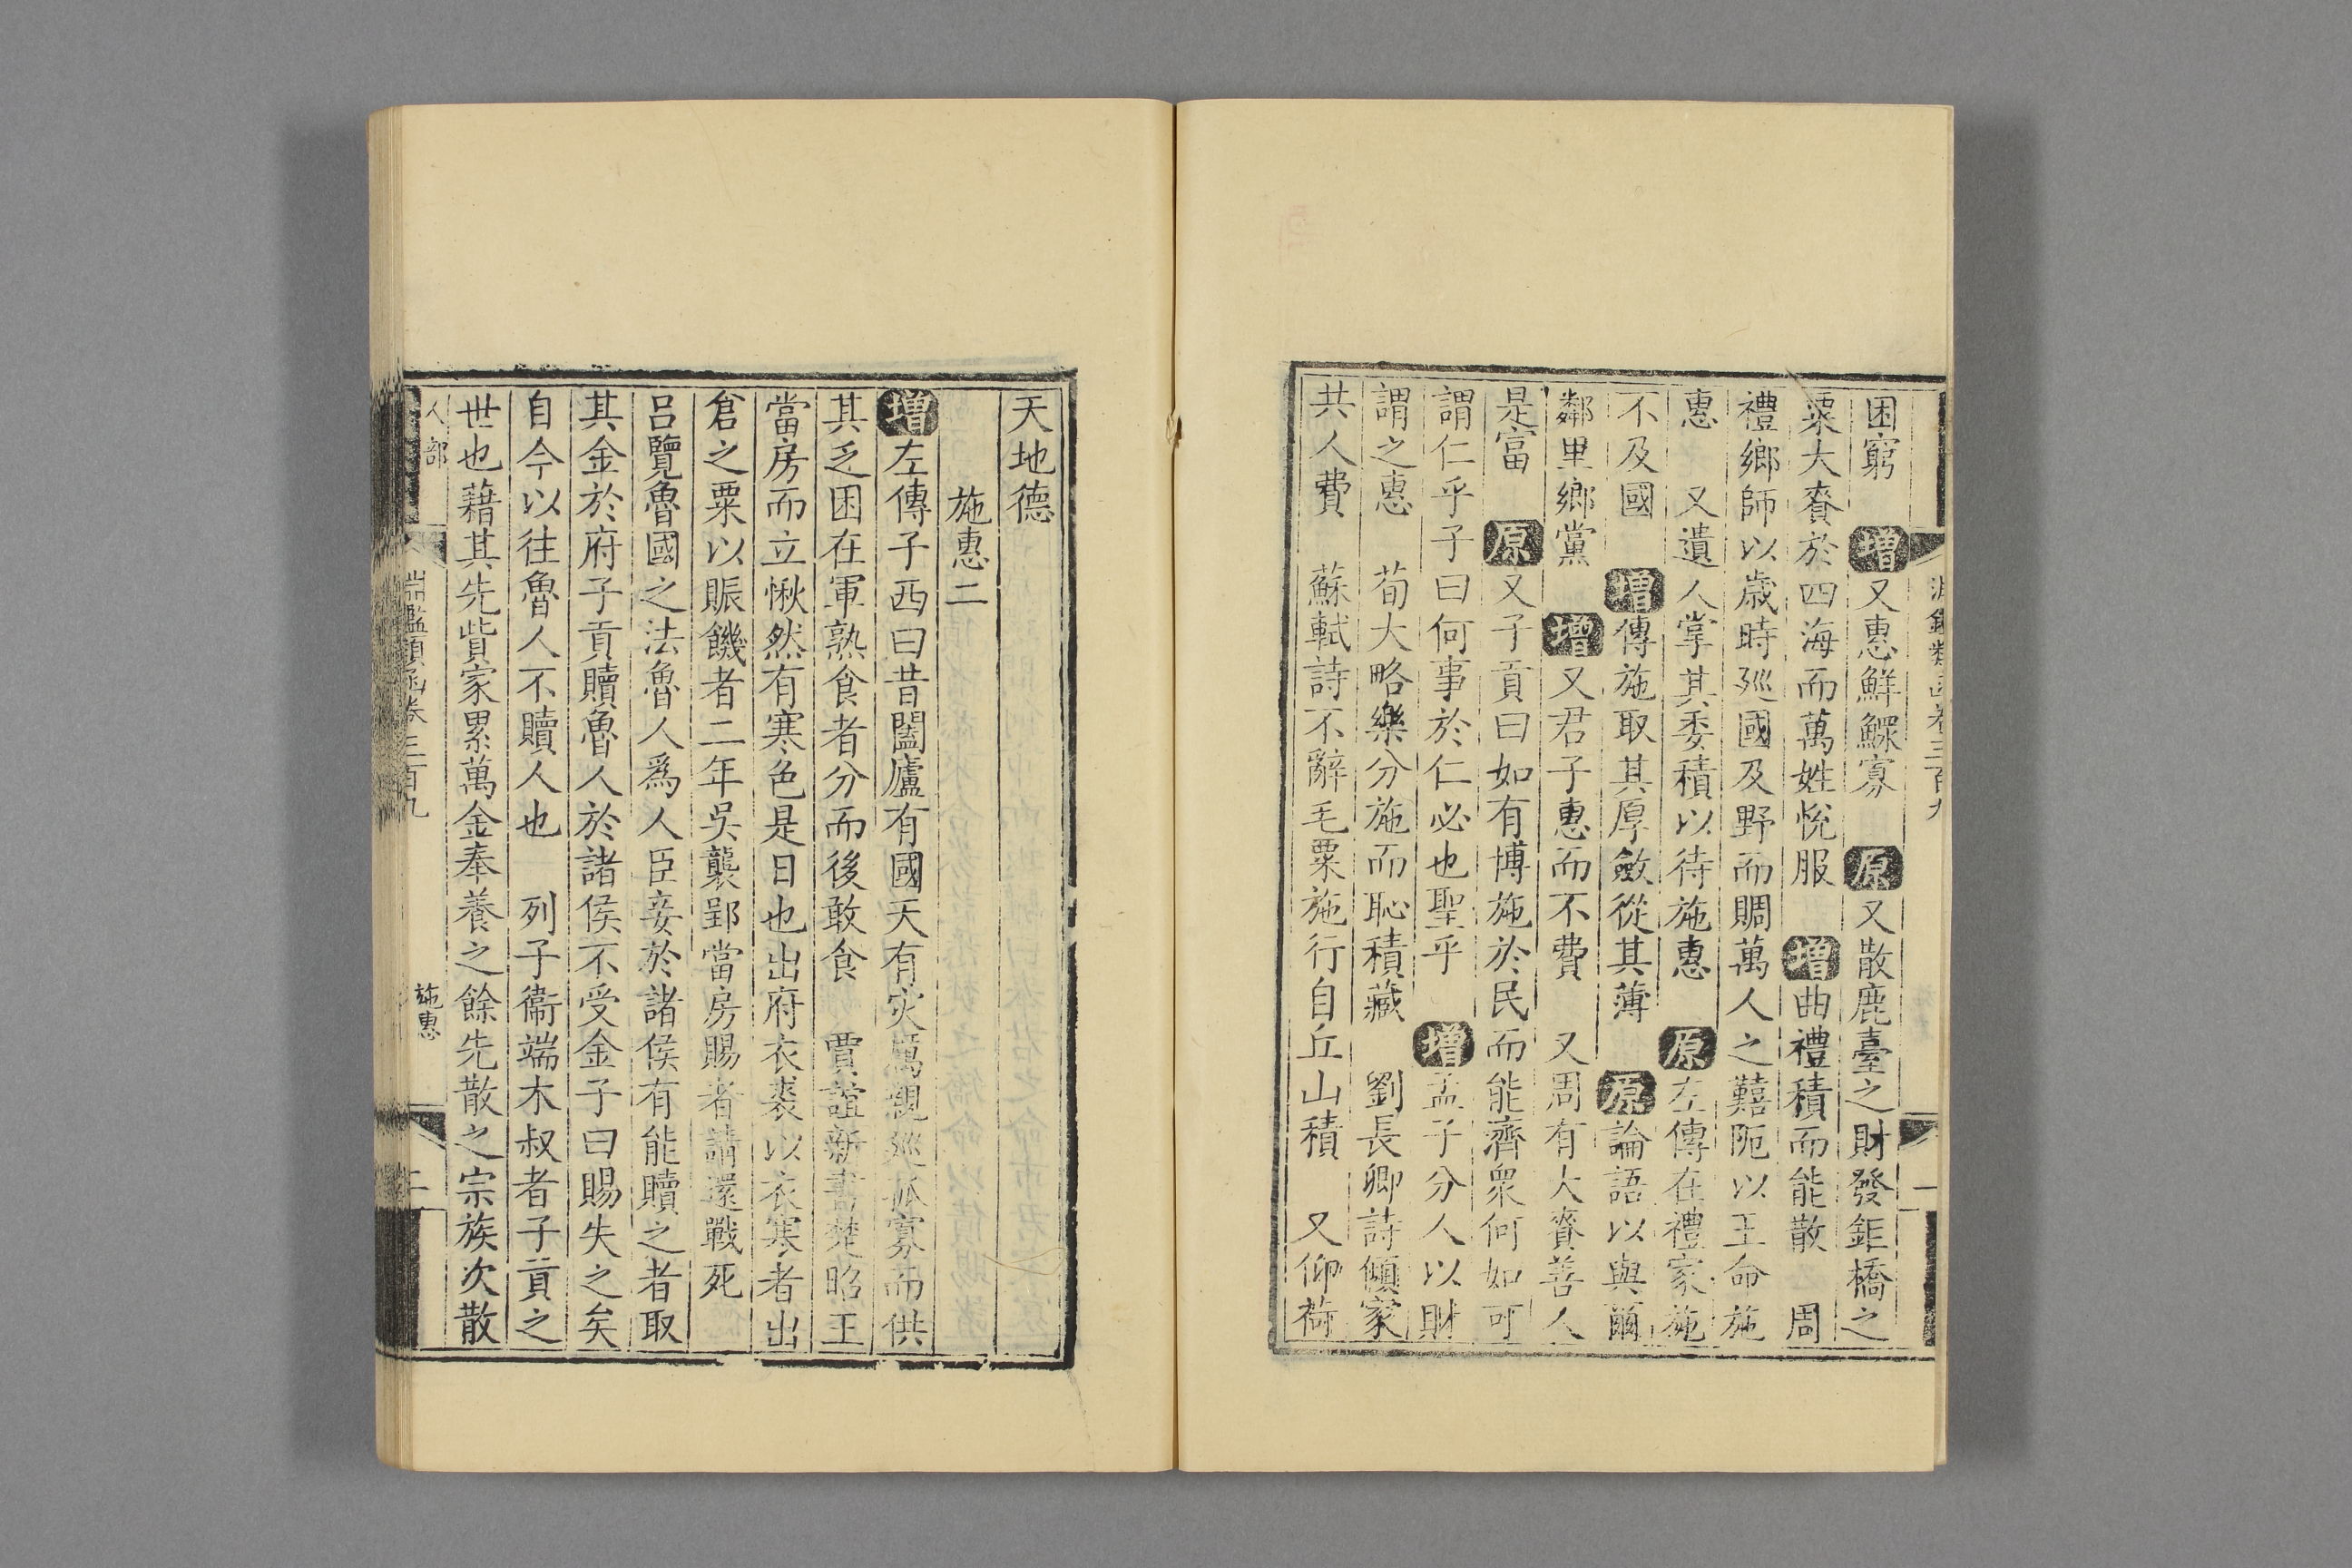 困窮 增又惠鮮鰥寡 原又散鹿臺之財發鉅橋之
粟大賚於四海而萬姓悅服 增曲禮積而能散 周
禮鄉師以歲時廵國及野而賙萬人之囏阨以王命施
惠 又遺人掌其委積以待施惠 原左傳在禮家施
不及國 增傳施取其厚斂從其薄 原論語以與爾
鄰里鄉黨 增又君子惠而不費 又周有大賚善人
是富 原又子貢曰如有博施於民而能濟衆何如可
謂仁乎子曰何事於仁必也聖乎 增孟子分人以財
謂之惠 荀大略樂分施而恥積藏 劉長卿詩傾家
共人費 蘇軾詩不辭毛粟施行自丘山積 又仰荷
天地德
施惠二
增左傳子西曰昔闔廬有國天有災厲親廵孤寡而供
其乏困在軍熟食者分而後敢食 賈誼新書楚昭王
當房而立愀然有寒色是日也出府衣裘以衣寒者出
倉之粟以賑饑者二年吳襲郢當房賜者請還戰死
呂覽魯國之法魯人爲人臣妾於諸侯有能贖之者取
其金於府子貢贖魯人於諸侯不受金子曰賜失之矣
自今以往魯人不贖人也 列子衞端木叔者子貢之
世也藉其先貲家累萬金奉養之餘先散之宗族次散
人部
淵鑑類函卷三百九
施惠
二